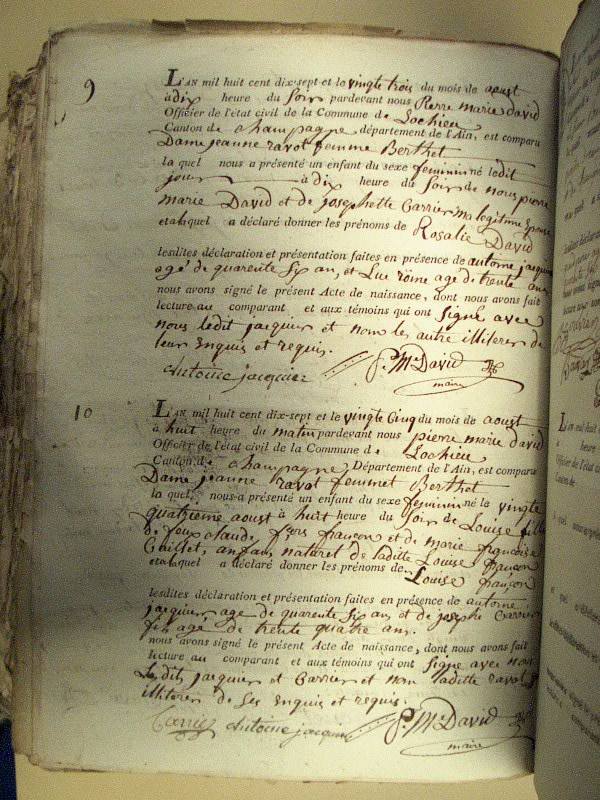 9
L'AN mil huit cent dix-sept et le vingt trois du mois de aoust
à dix heure du soir pardevant nous Pierre marie david
Officier de l'état civil de la Commune de Lochieu
Canton de Champagne, département de l'Ain, est comparu
Dame jeanne ravot femme Berthet
la quel nous a présenté un enfant du sexe feminin né ledit
jour à dix heure du soir de nous pierre
marie David et de josephette Carrier ma legitime Epouse
et auquel a déclaré donner les prénoms de Rosalie David
lesdites déclaration et présentation faites en présence de antoine jacquier
agé de quarente six an, et Luc röme agé de trente ans
nous avons signé le présent Acte de naissance, dont nous avons fait
lecture au comparant et aux témoins qui ont signé avec
nous ledit jacquier et nom les autre illiterer de
leur Enquis et requis.
Antoine jacquier P. M. David
maire
10
L'AN mil huit cent dix-sept et le vingt Cinq du mois de aoust
à huit heure du matin pardevant nous pierre marie david
Officier de l'état civil de la Commune de Lochieu
Canton de Champagne, Département de l'Ain, est comparu
Dame jeanne ravot femmet Berthet
la quel nous a présenté un enfant du sexe feminin né la vingte
quatrieme aoust à huit heure du soir de Louise fille
de feux claude françon et de marie françoise
Caillet, anfan naturel de laditte Louise françon
et auquel a déclaré donner les prénoms de Louise françon
lesdites déclaration et présentation faites en présence de antoine
jacquier age de quarente six ans et de josephe Carrier
fils agé de trente quatre ans.
nous avons signé le présent Acte de naissance, dont nous avons fait
lecture au comparant et aux témoins qui ont signe avec nous
Lesdits jacquier et Carrier et nom laditte ravot
illiterer de Ses Enquis et requis.
Carrier antoine jacquier P. M. David
maire